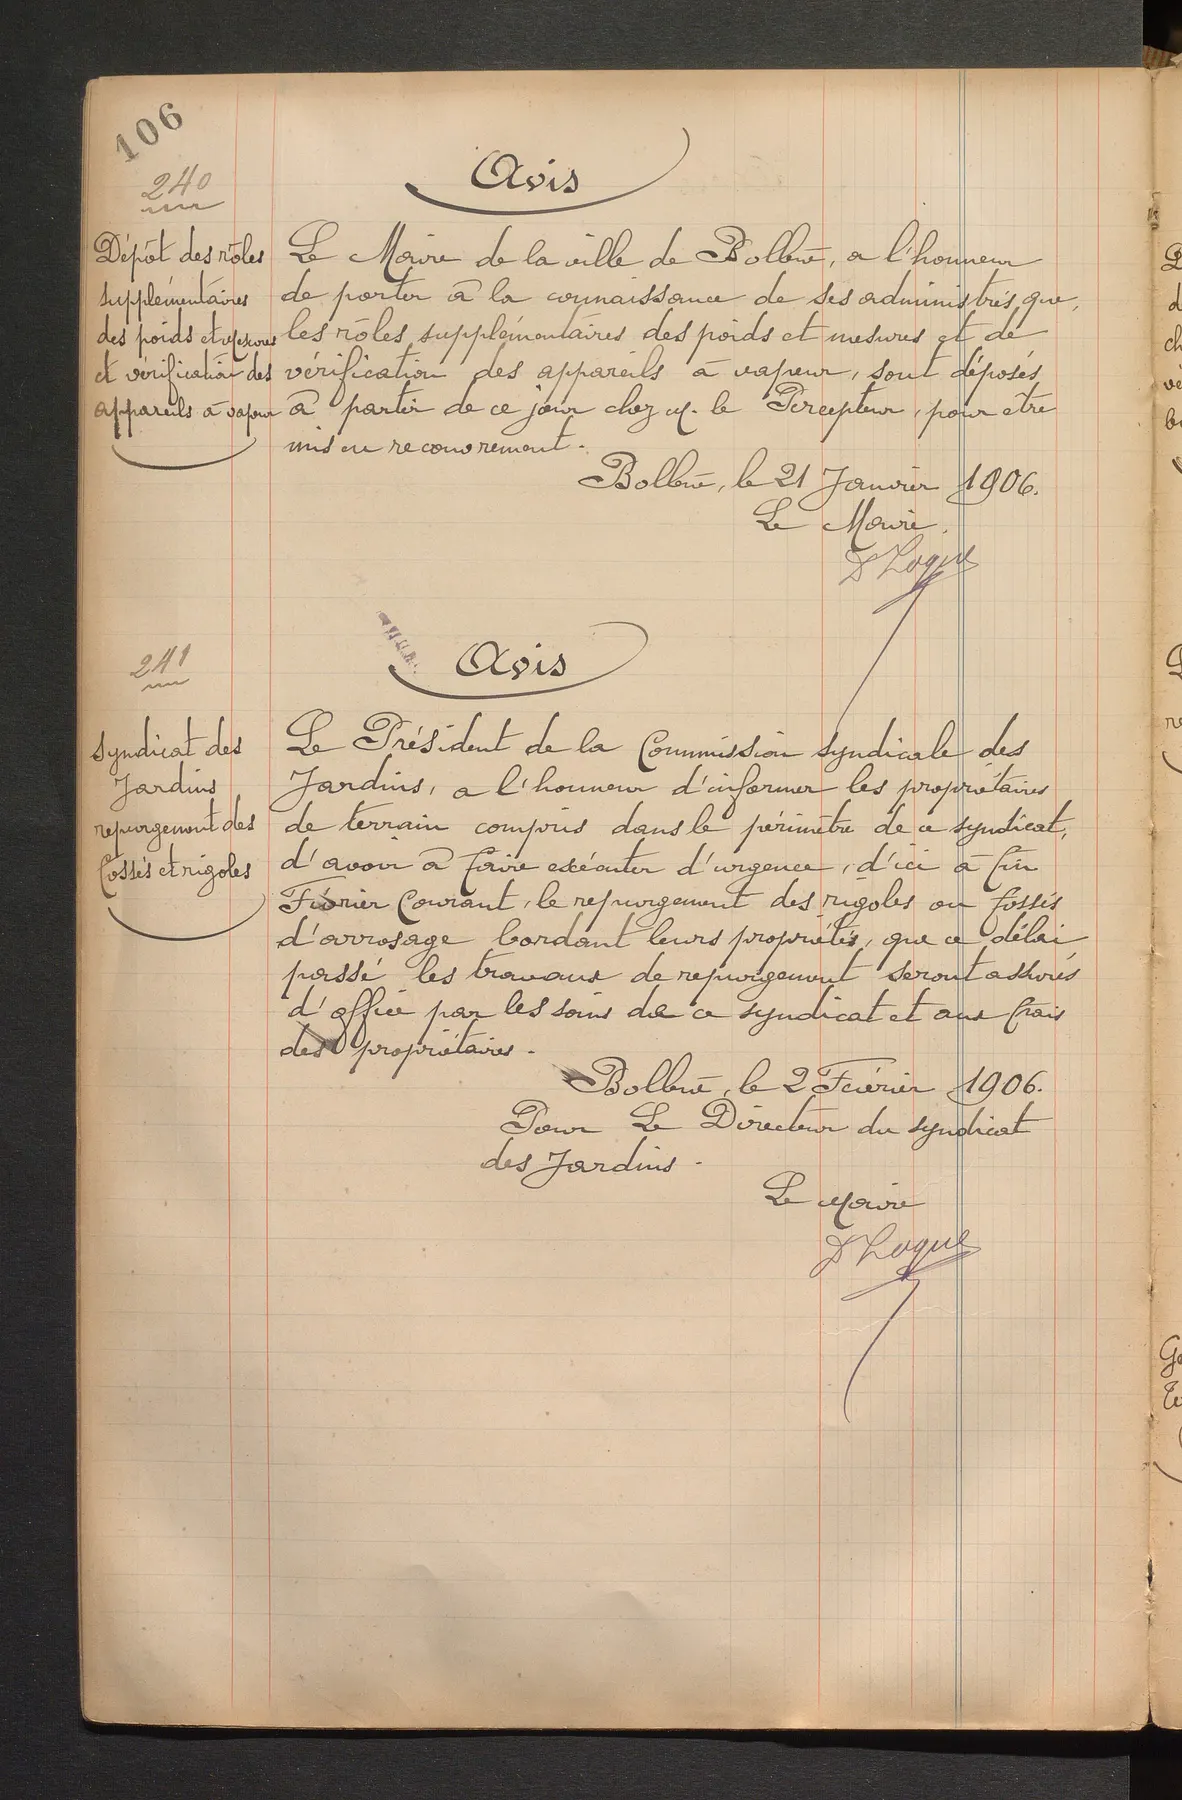 106
240
Avis
Dépôt des rôles
supplémentaires
des poids et Mesures
et vérification des
appareils à vapeur
Le Maire de la ville de Bollène, a l'honneur
de porter à la connaissance de ses administrés, que,
les rôles supplémentaires des poids et mesures et de
vérification des appareils à vapeur, sont déposés
à partir de ce jour chez M. le Percepteur, pour être
mis en recouvrement.
Bollène, le 21 Janvier 1906.
Le Maire.
241
Avis
Syndicat des
Jardins
repurgement des
fossés et rigoles
Le Président de la Commission syndicale des
Jardins, a l'honneur d'informer les propriétaires
de terrain compris dans le périmètre de ce syndicat,
d'avoir à faire exécuter d'urgence, d'ici à fin
Février Courant, le repurgement des rigoles ou fossés
d'arrosage bordant leurs propriétés, que ce délai
passé les travaux de repurgement seront assurés
d'office par les soins de ce syndicat et aux frais
des propriétaires.
Bollène, le 2 Février 1906.
Pour Le Directeur du syndicat
des Jardins.
Le Maire